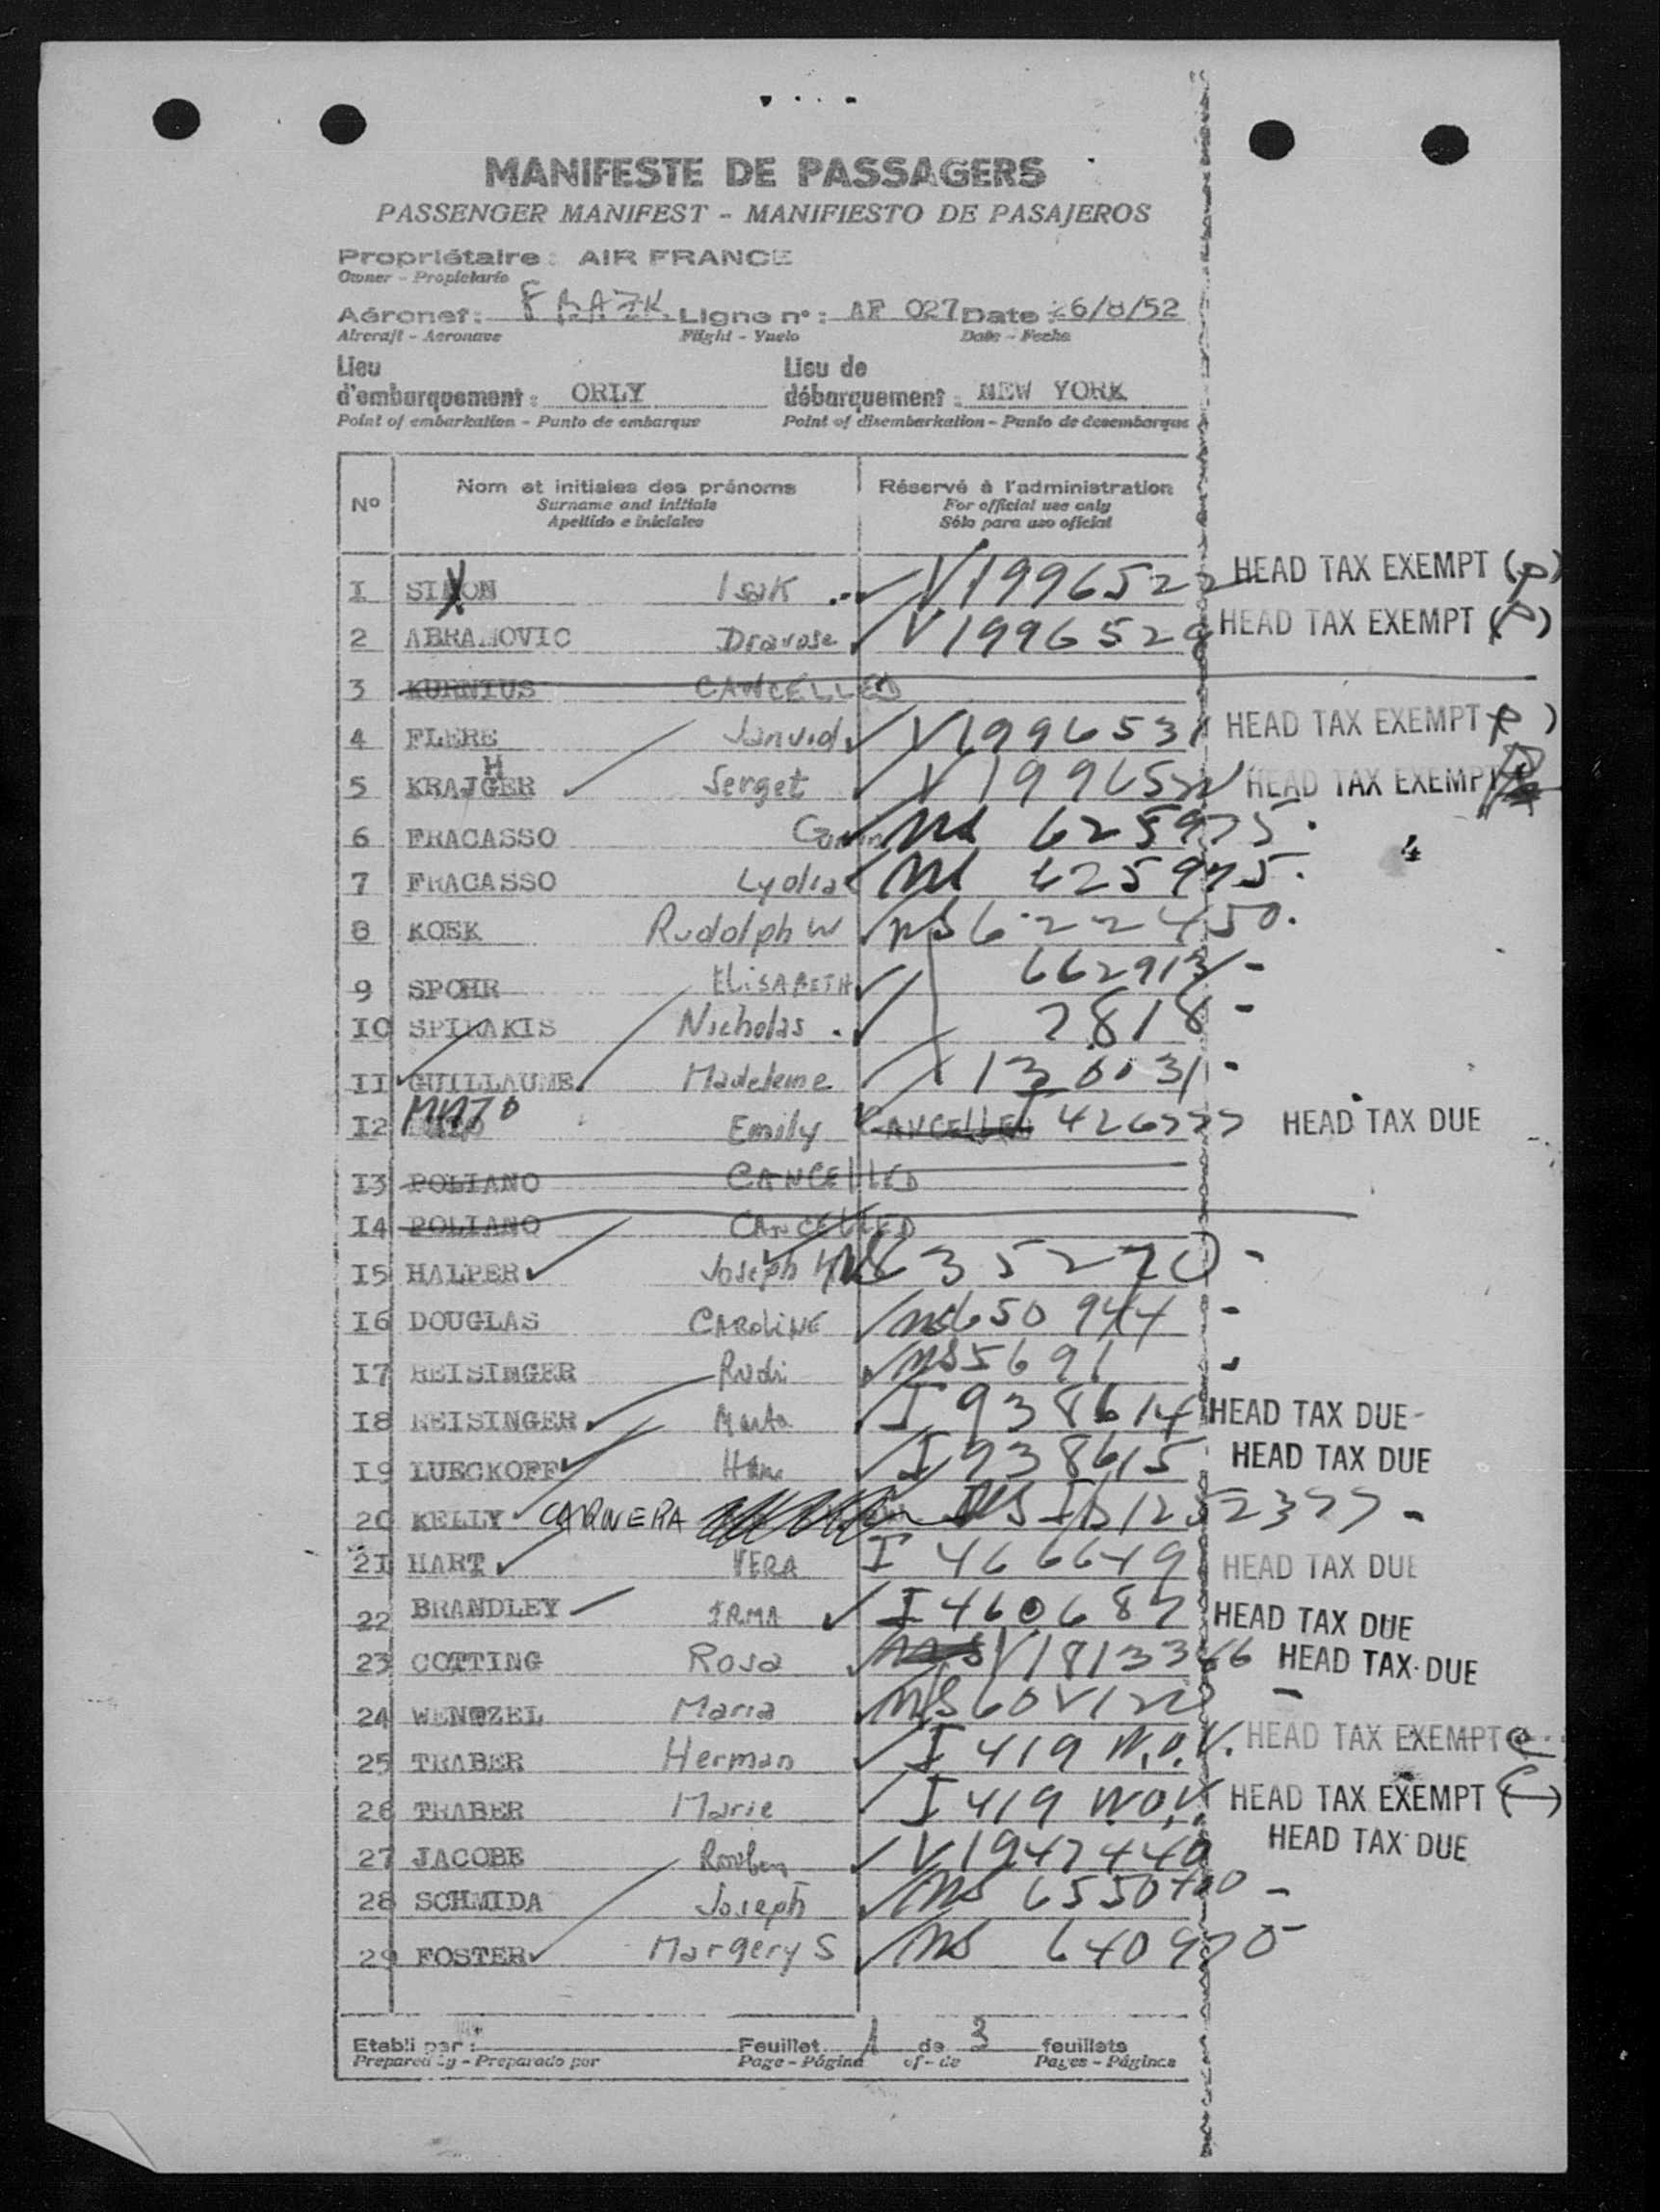 MANIFESTE DE PASSAGERS
PASSENGER MANIFEST - MANIFIESTO DE PASAJEROS
Propriétaire : AIR FRANCE
Owner - Propietario
Aéronef : FBAZK Ligne n° : AF 027 Date 26/8/52
Aircraft - Aeronave Flight - Vuelo Date - Fecha
Lieu d'embarquement : ORLY Lieu de débarquement : NEW YORK
Point of embarkation - Punto de embarque Point of disembarkation - Punto de desembarque
N° Nom et initiales des prénoms Réservé à l'administration
Surname and initials For official use only
Apellido e iniciales Sólo para uso oficial
I Isak V1996522 HEAD TAX EXEMPT (P)
2 ABRAMOVIC V1996528 HEAD TAX EXEMPT (P)
3 KURNIUS CANCELLED
4 FLERE Janvid V1996531 HEAD TAX EXEMPT (P)
5 KRAJGER H Serget HEAD TAX EXEMPT
6 FRACASSO 625975.
7 FRACASSO Lydia 625975.
8 KOEK Rudolph W NS 622450.
9 SPOHR ELISABETH 662913 -
10 SPIRAKIS Nicholas 2818 -
II GUILLAUME Madeleine 130031 -
I2 Emily CANCELLED HEAD TAX DUE
I3 POLIANO CANCELLED
I4 POLIANO CANCELLED
I5 HALPER Joseph 635270 -
I6 DOUGLAS CAROLINE 650944 -
I7 REISINGER Rudi NS 5691
I8 REISINGER Marta I 938614 HEAD TAX DUE
I9 LUECKOFF I 938615 HEAD TAX DUE
20 KELLY CARNERA -
2I HART VERA I 466649 HEAD TAX DUE
22 BRANDLEY IRMA I 460687 HEAD TAX DUE
23 COTTING Rosa HEAD TAX DUE
24 WENTZEL Maria -
25 TRABER Herman I 419 W.O.V. HEAD TAX EXEMPT
26 TRABER Marie I 419 W.O.V. HEAD TAX EXEMPT
27 JACOBE V1947440 HEAD TAX DUE
28 SCHMIDA Joseph NS -
29 FOSTER Margery S NS 640970
Etabli par : Feuillet 1 de 3 feuillets
Prepared by - Preparado por Page - Página of - de Pages - Páginas